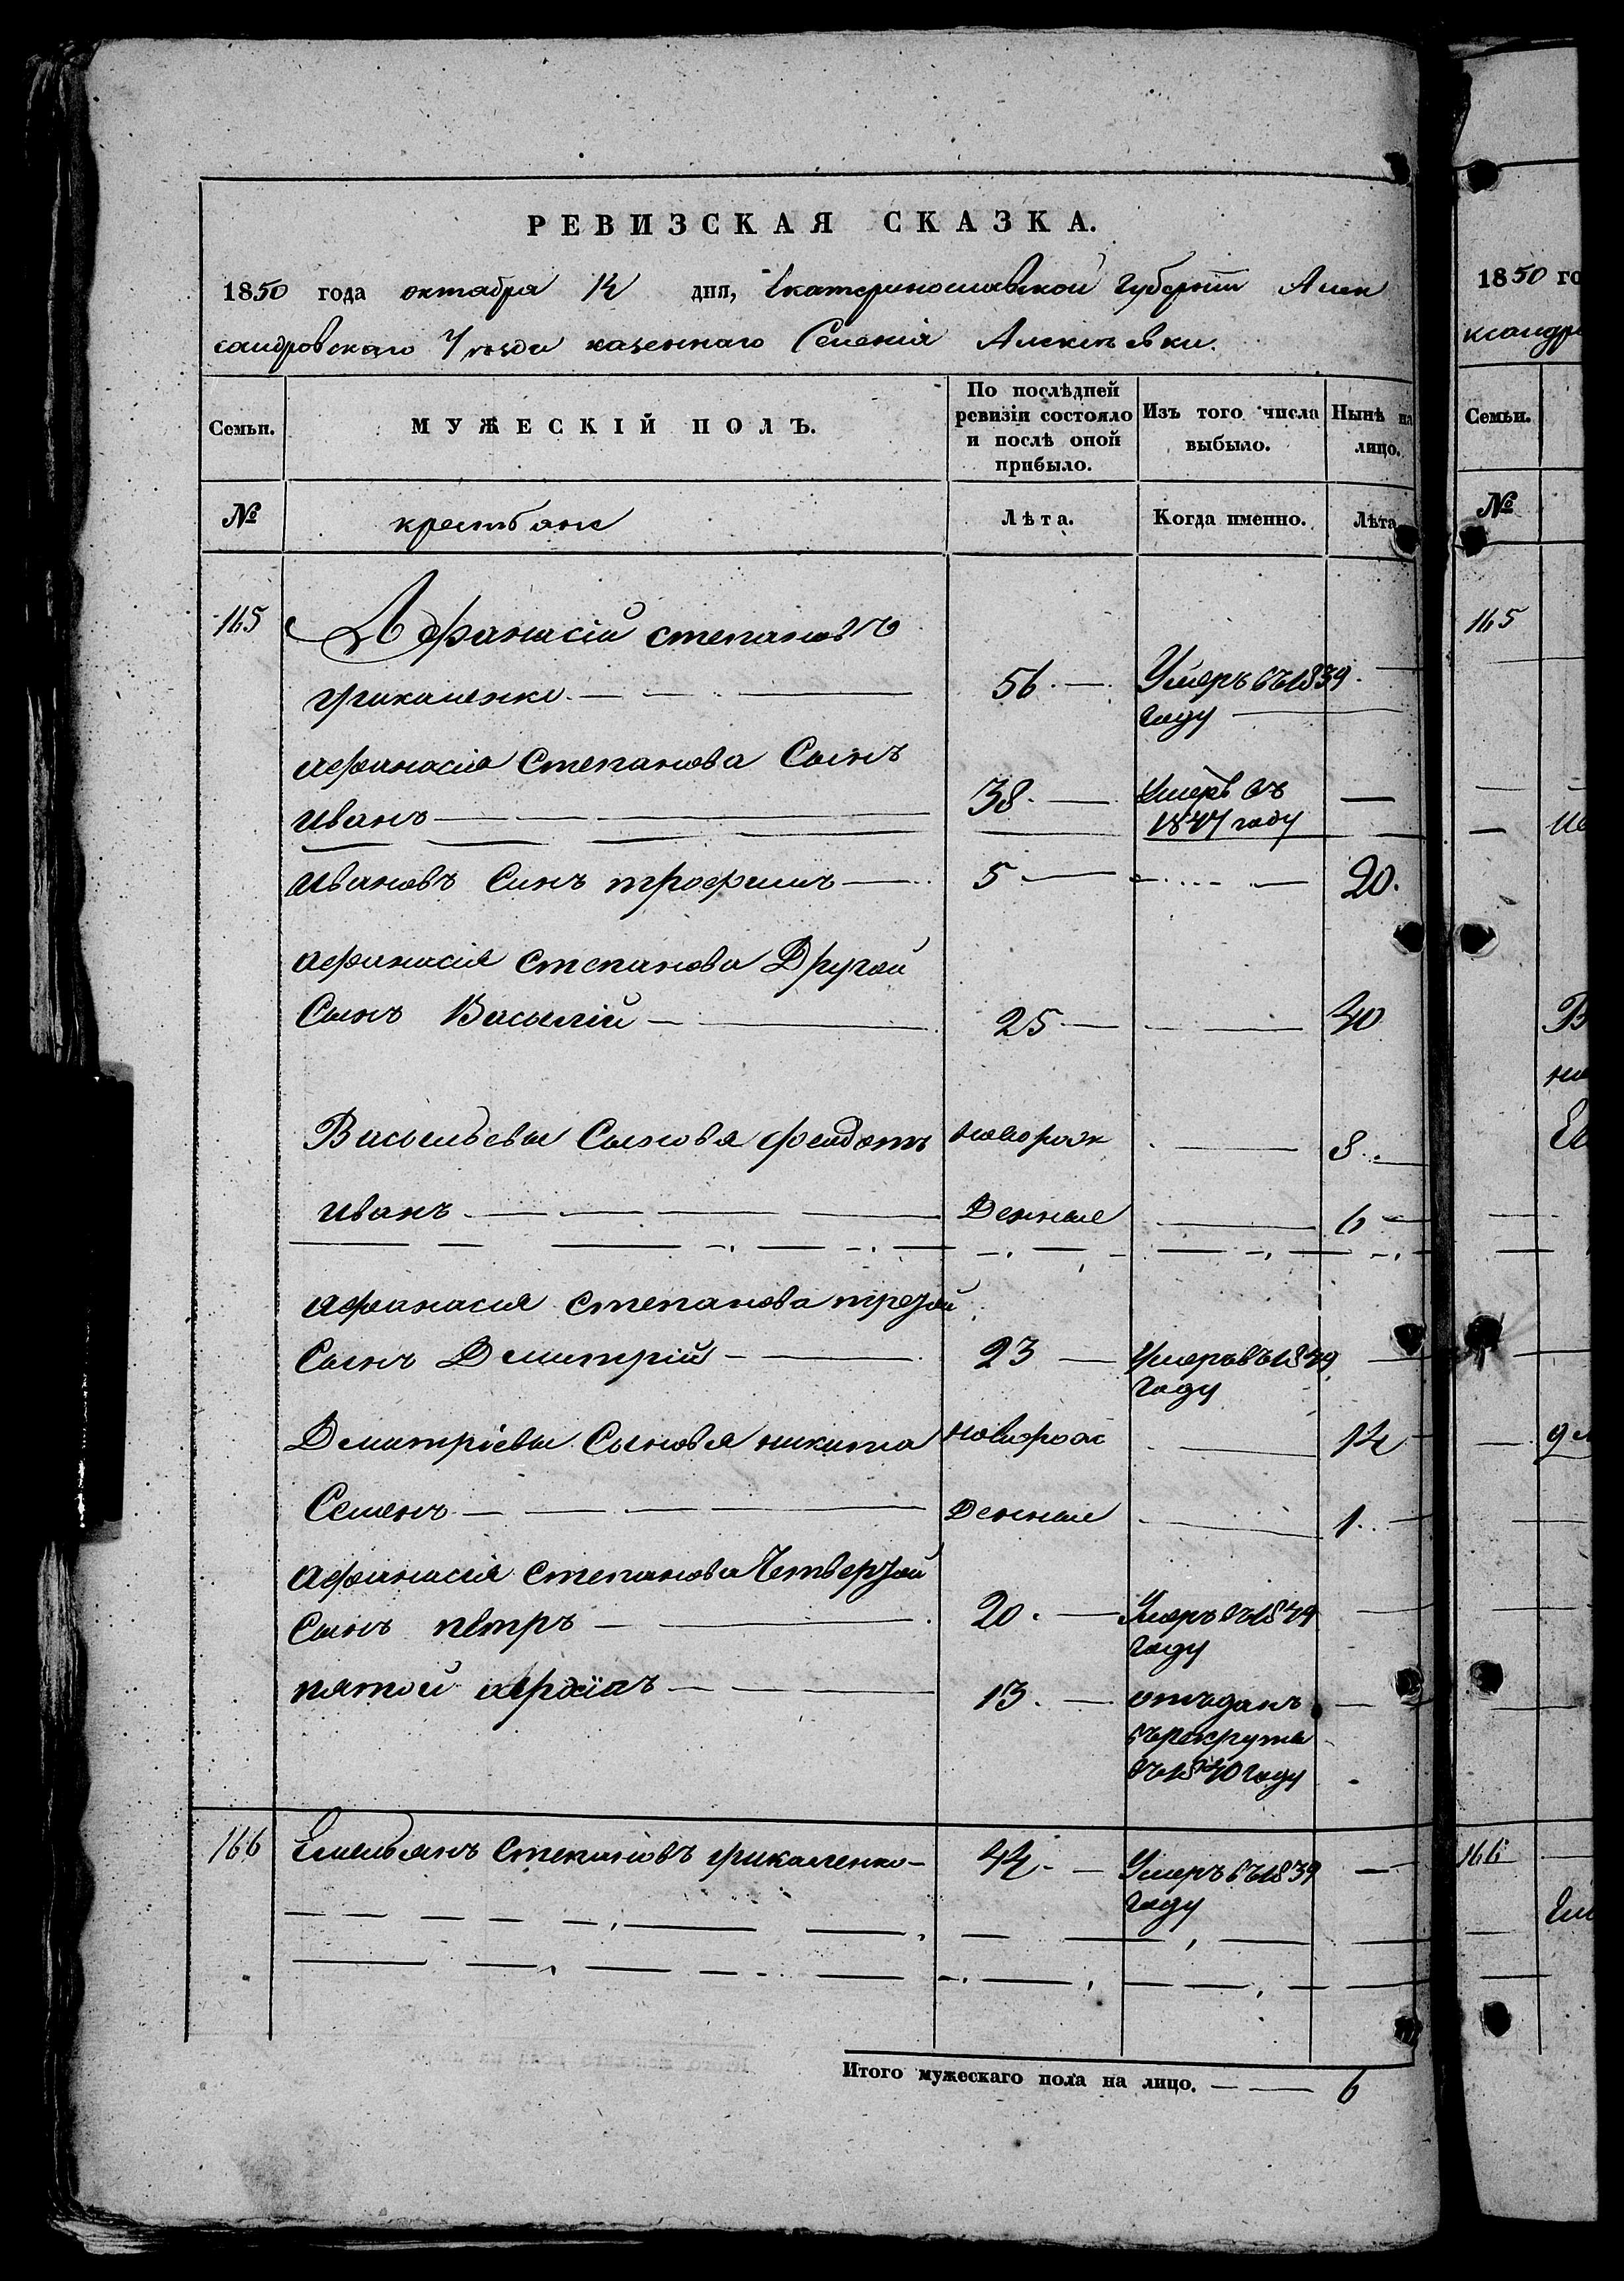 РЕВИЗСКАЯ СКАЗКА.
1850 года октабра 14 дня, Екатеринославской Губернiи Алек
сандровского Уѣзда казенного Селенiя Алексѣевки.
Семьи.
МУЖЕСКІЙ ПОЛЪ.
По послѣдней ревизіи состояло и послѣ оной прибыло.
Изъ того числа выбыло.
Нынѣ на лицо.
№
крестьяне
Лѣта.
Когда именно.
Лѣта
165 Афанасiй степановъ
грикаленко 56. Умеръ въ 1839.
году
афанасiя Степанова Сынъ
иванъ 38. Умеръ въ
1847 году
ивановъ Синъ трофимъ 5 20.
афанасiя степанова Другой
Сынъ Василiй 25 40
Васильевы Сыновя федотъ новорож 8
иванъ Денные 6
афанасия степанова третой
Сынъ Дмитрiй 23 Умеръ въ 1849
году
Дмитрiевы Сыновя никита новорож 14
Семенъ Денные 1
афанасiя степанова Четвертой
Сынъ петръ 20. Умеръ въ 1849
году
пятой 13. отъданъ
въ рекруты
въ 1840 году
166 Емельянъ степановъ грикаленко 44. Умеръ въ 1839
году
Итого мужескаго пола на лицо. 6
1850 го
ксандр
Семьи.
№
165
166